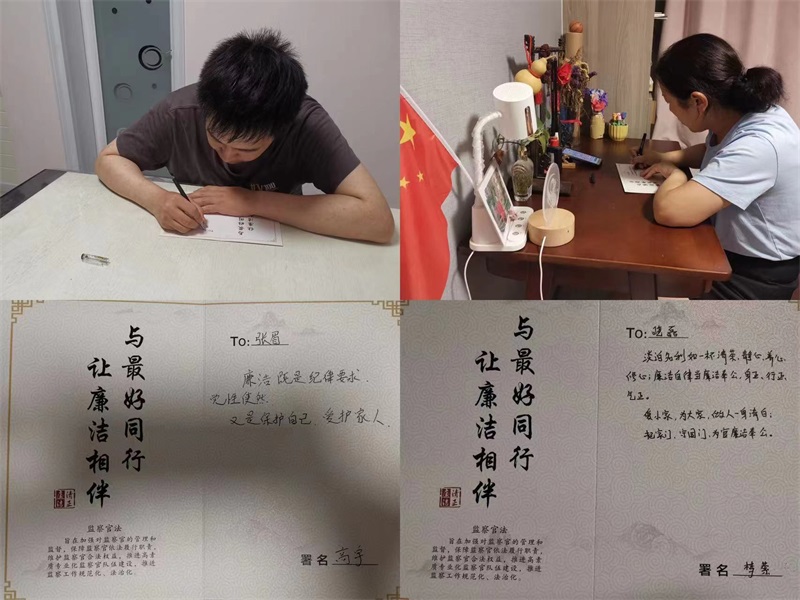 与最好同行
让廉洁相伴
清正
监察官法
旨在加强对监察官的管理和
监督，保障监察官依法履行职责，
维护监察官合法权益，推进高素
质专业化监察官队伍建设，推进
监察工作规范化、法治化。
To: 张眉
廉洁 既是纪律要求、
党性使然，
又是保护自己、爱护家人。
署名 高宇
与最好同行
让廉洁相伴
清正
监察官法
旨在加强对监察官的管理和
监督，保障监察官依法履行职责，
维护监察官合法权益，推进高素
质专业化监察官队伍建设，推进
监察工作规范化、法治化。
To: 晓磊
淡泊名利如一杯清茶，静心、养心、
修心；廉洁自律当廉洁奉公，身正、行正、
气正。
爱小家，为大家，做人一身清白；
把家门、守国门，为官廉洁奉公。
署名